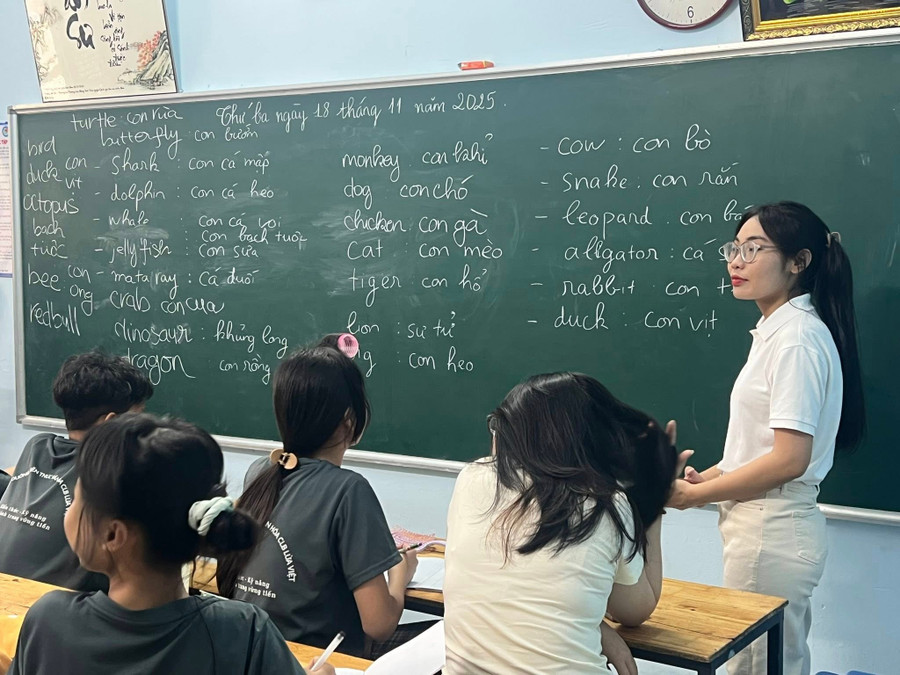 Thứ ba ngày 18 tháng 11 năm 2025.
turtle : con rùa
butterfly : con bướm
bird
duck con vịt
octopus
bạch
tuộc
bee con ong
redbull
- shark : con cá mập
- dolphin : con cá heo
- whale : con cá voi
con bạch tuột
- jellyfish : con sứa
- mataray : cá đuối
- crab con cua
dinosaur : khủng long
dragon con rồng
monkey con khỉ
dog con chó
chicken con gà
cat con mèo
tiger con hổ
lion : sư tử
: con heo
- cow : con bò
- snake : con rắn
- leopard con
- alligator : cá
- rabbit con
- duck : con vịt
6
VĂN HÓA CLB LÚA VIỆT
Kỹ năng
vững tiến
HÓA CLB LÚA VIỆT
- Kỹ năng
trong vững tiến